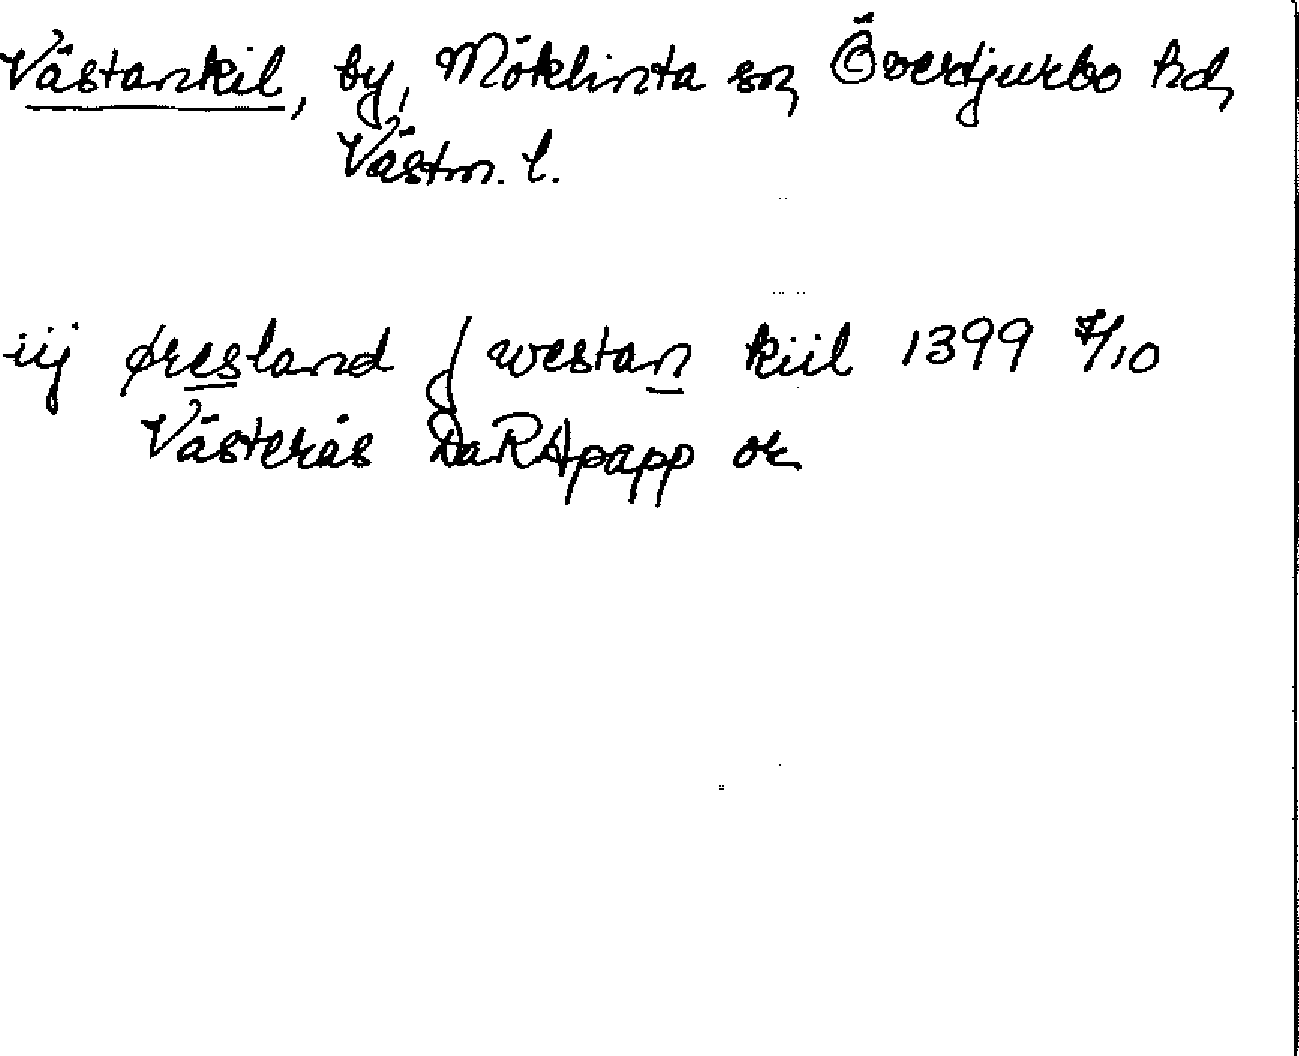 Västankil, by, Möklinta sn, Överdjurbo hd,
Västm. l.
iij øresland j westan kiil 1399 8/10
Västerås DaRApapp or